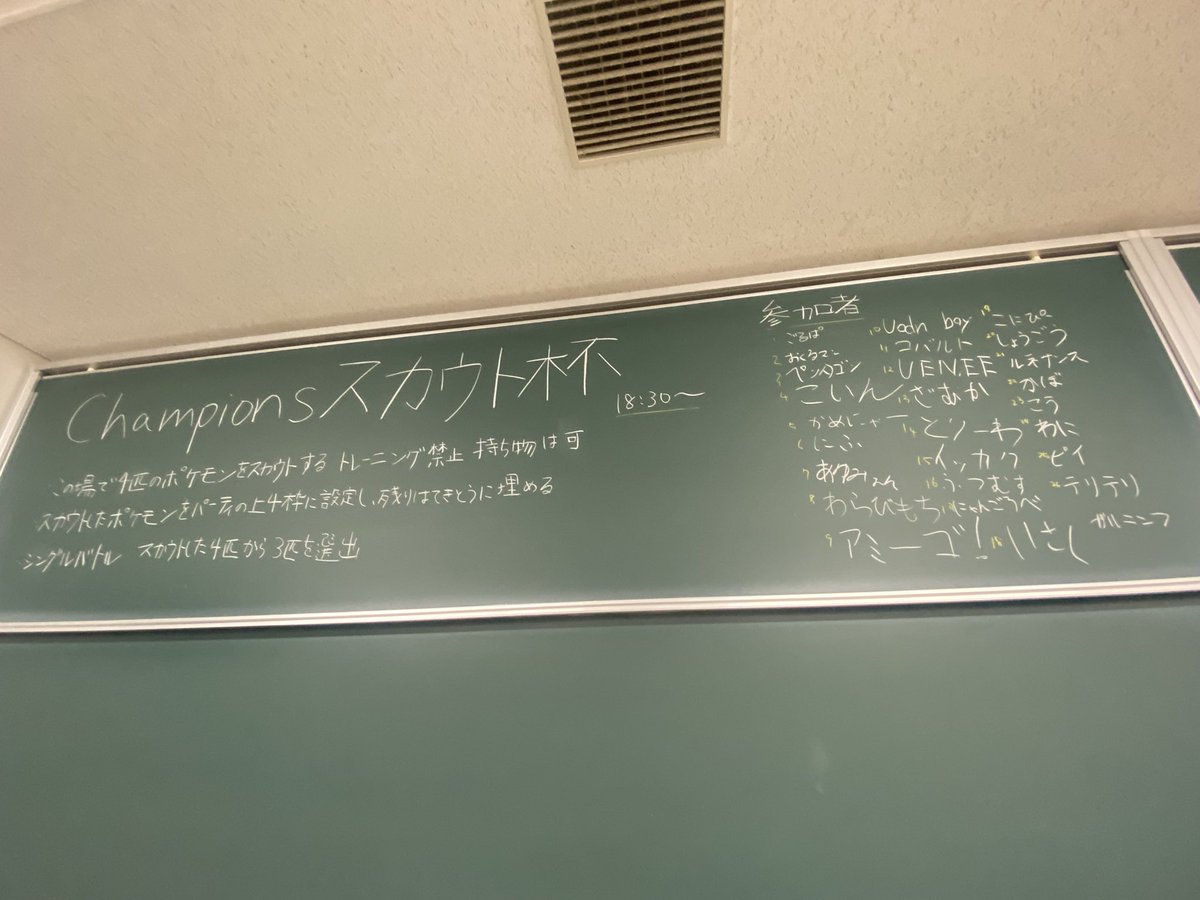 Championsスカウト杯
18:30〜
この場で4匹のポケモンをスカウトする トレーニング禁止 持ち物は可
スカウトしたポケモンをパーティの上4枠に設定し、残りはてきとうに埋める
シングルバトル スカウトした4匹から3匹を選出
参加者
1 ごるぱ
2 おくるマン
3 ペンタゴン
4 こいん
5 かめにゃー
6 じふ
8 わらびもち
9 アミーゴ!
10 Uodn boy
11 コバルト
12 UENEE
13 ざむか
14 とりーわ
15 イッカク
16 うつむす
17 にゃんごうべ
18 いさし
19 こにぴ
20 しょうごう
21 ルネサンス
22 かば
23 こう
24 わに
25 ピイ
26 テリテリ